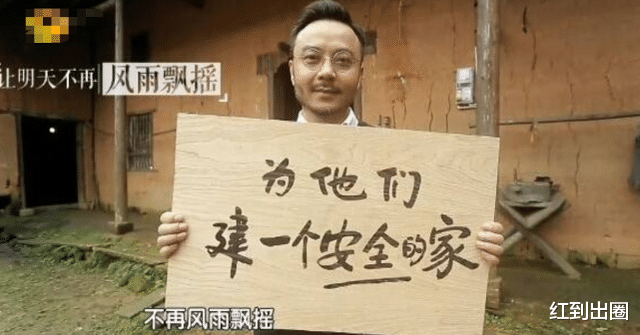 让明天不再 风雨飘摇
为他们
建一个安全的家
不再风雨飘摇
红到出圈